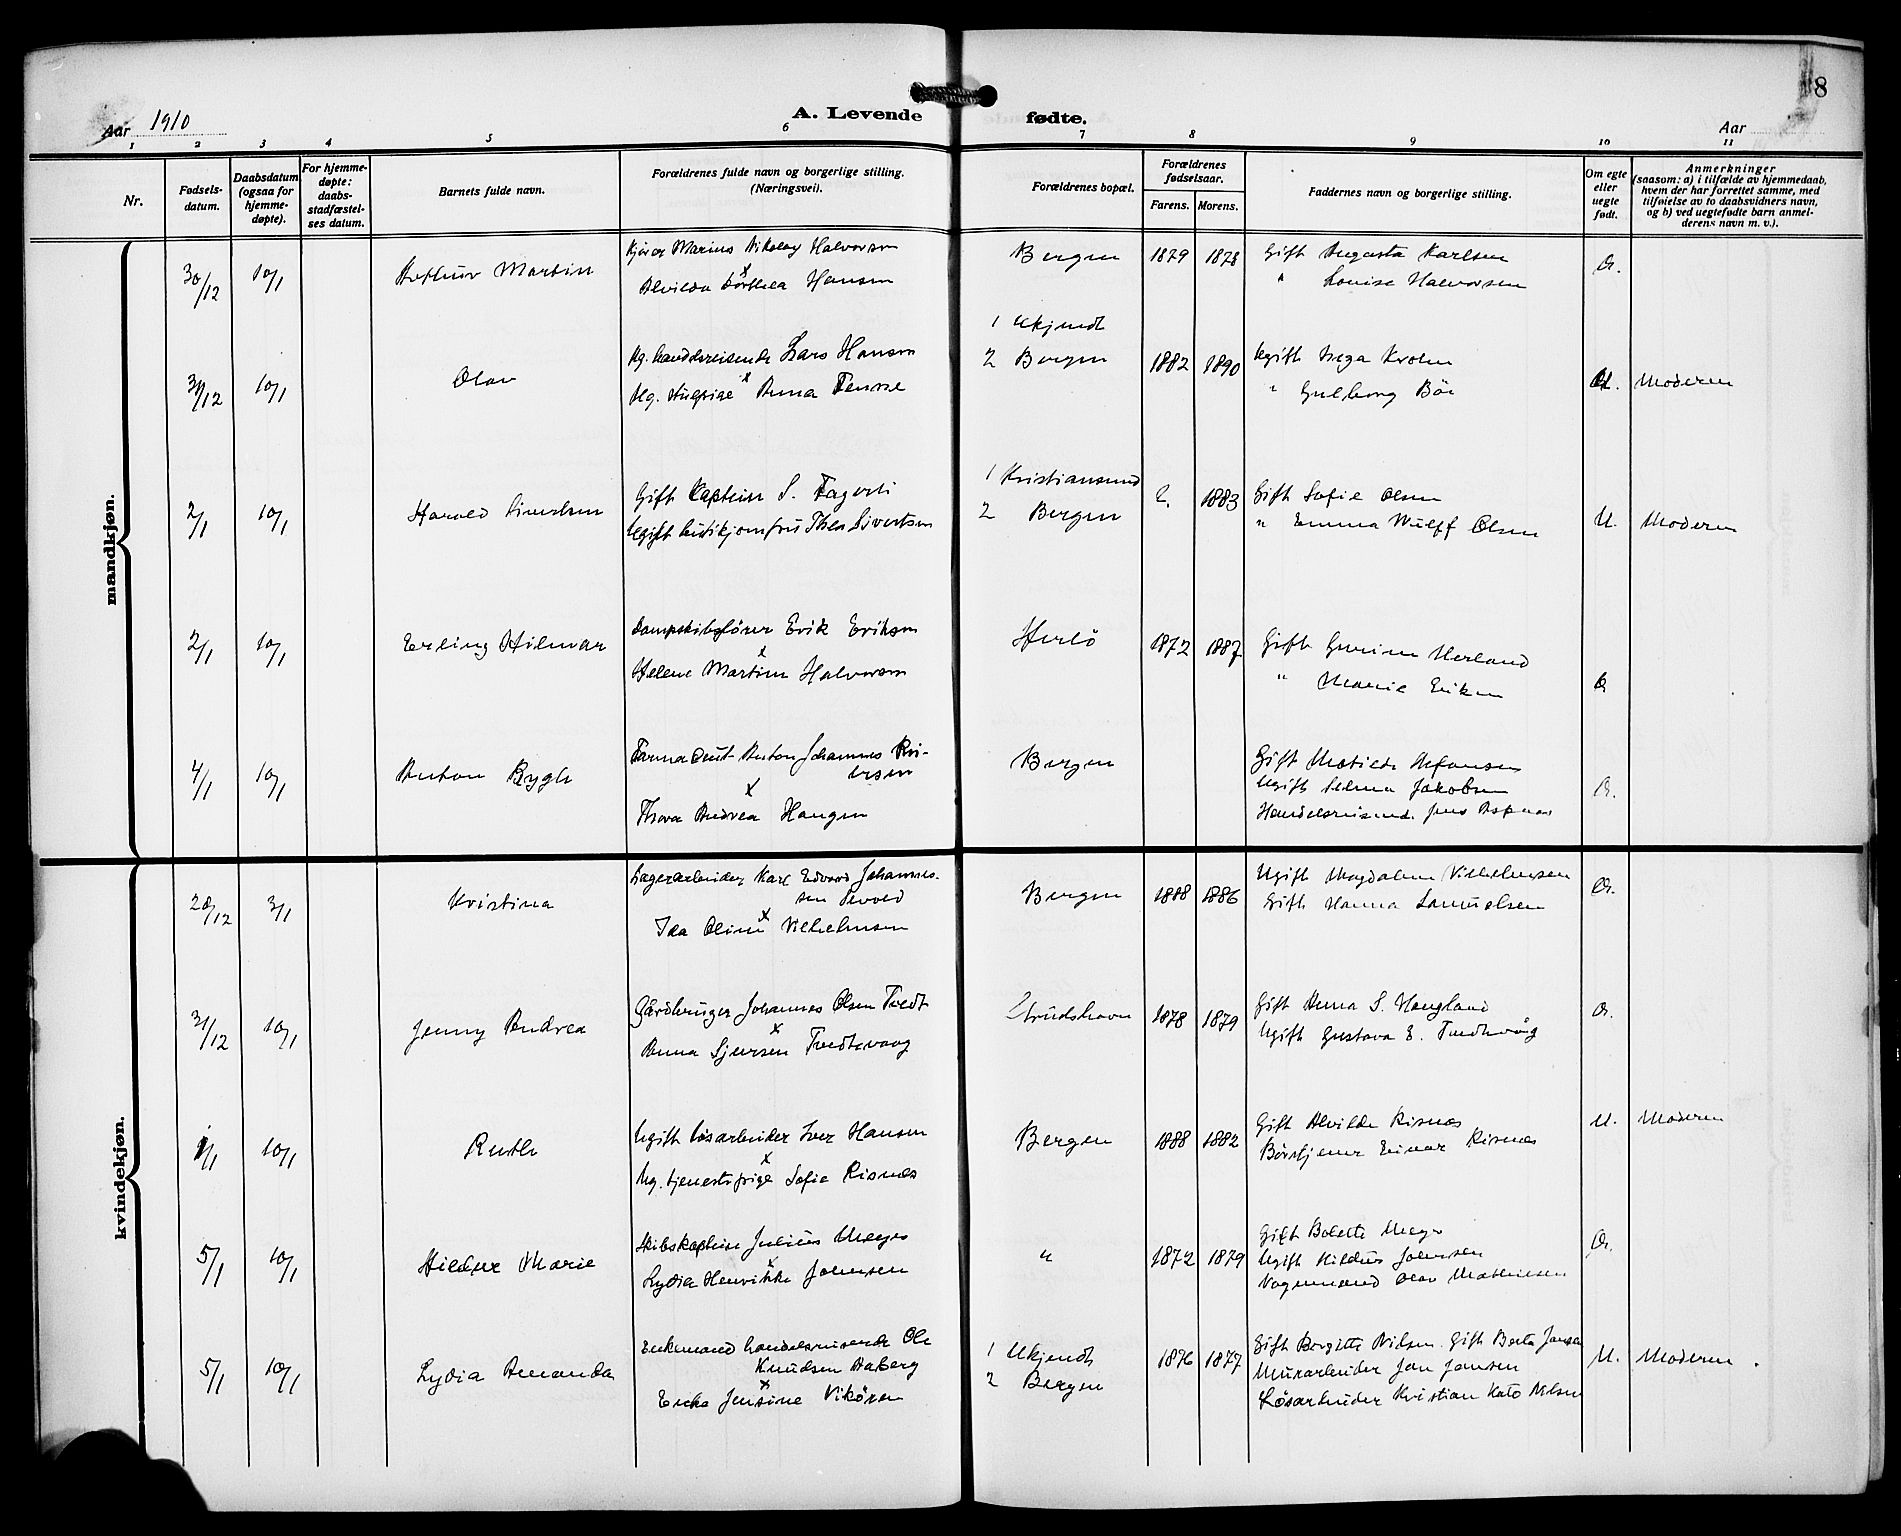 Aar 1910
A. Levende fødte.
Aar
8
1 2 3 4 5 6 7 8 9 10 11
Nr.
Fødsels-
datum.
Daabsdatum
(ogsaa for
hjemme-
døpte).
For hjemme-
døpte:
daabs-
stadfæstel-
ses datum.
Barnets fulde navn.
Forældrenes fulde navn og borgerlige stilling.
(Næringsvei).
Forældrenes bopæl.
Forældrenes
fødselsaar.
Farens. Morens.
Faddernes navn og borgerlige stilling.
Om egte
eller
uegte
født.
Anmerkninger
(saasom: a) i tilfælde av hjemmedaab,
hvem der har forrettet samme, med
tilføielse av to daabsvidners navn,
og b) ved uegtefødte barn anmel-
derens navn m. v.).
mandkjøn.
30/12 10/1 Arthur Martin
Marius Nikolay Halvorsen
Alvilda Dorthea Hansen
Bergen 1879 1878
Gift Augusta Karlsen
" Louise Halvorsen
10/1 Olav
Ug. handelsreisende Lars Hansen
Ug. Anna
1 Ukjendt
2 Bergen 1882 1890
Ugift Inga
" Gulborg Bøe
U. Moderen
2/1 10/1 Harald Sivertsen
Gift Kaptein S. Fagerli
Ugift butikjomfru Thea Sivertsen
1 Kristiansund
2 Bergen ?. 1883
Gift Sofie Olsen
" Emma Wulff Olsen
U. Moderen
2/1 10/1 Erling Hilmar
Dampskibsfører Erik Eriksen
Helene Martine Halvorsen
Herlø 1872 1887
Gift
" Marie
4/1 10/1 Anton Bygh
Anton Johannes
Thora Andrea Haugen
Bergen
Gift Matilde
Ugift Selma Jakobsen
Jens
kvindekjøn.
20/12 3/1 Kristina
Lagerarbeider Karl Edvard Johannes-
sen
Ida Oline Vilhelmsen
Bergen 1888 1886
Ugift Magdalene Vilhelmsen
Gift Hanna Samuelsen
31/12 10/1 Jenny Andrea
Gårdbruger Johannes Olsen Tvedt
Anna Sjursen
Strudshavn 1878 1879
Gift Anna S. Haugland
Ugift Gustava E.
1/1 10/1 Ruth
Ugift løsarbeider Iver Hansen
Ug. tjenestepige Sofie Risnes
Bergen 1888 1882
Gift Alvilde Risnes
Einar Risnes
U. Moderen
5/1 10/1 Hildur Marie
Skibskaptein Julius Meyer
Lydia Henrikke Johnsen
" 1872 1879
Gift Bolette Meyer
Ugift Johnsen
Vognmand Olav Mathiesen
5/1 10/1 Lydia Amanda
Enkemand handelsreisende Ole
Knudsen Aaberg
Enke Jensine Vikøren
1 Ukjendt
2 Bergen 1876 1877
Gift Bergitte Nilsen. Gift Berta Jansen
Murarbeider Jan Jansen
Løsarbeider Kristian Kato Nilsen
U. Moderen.